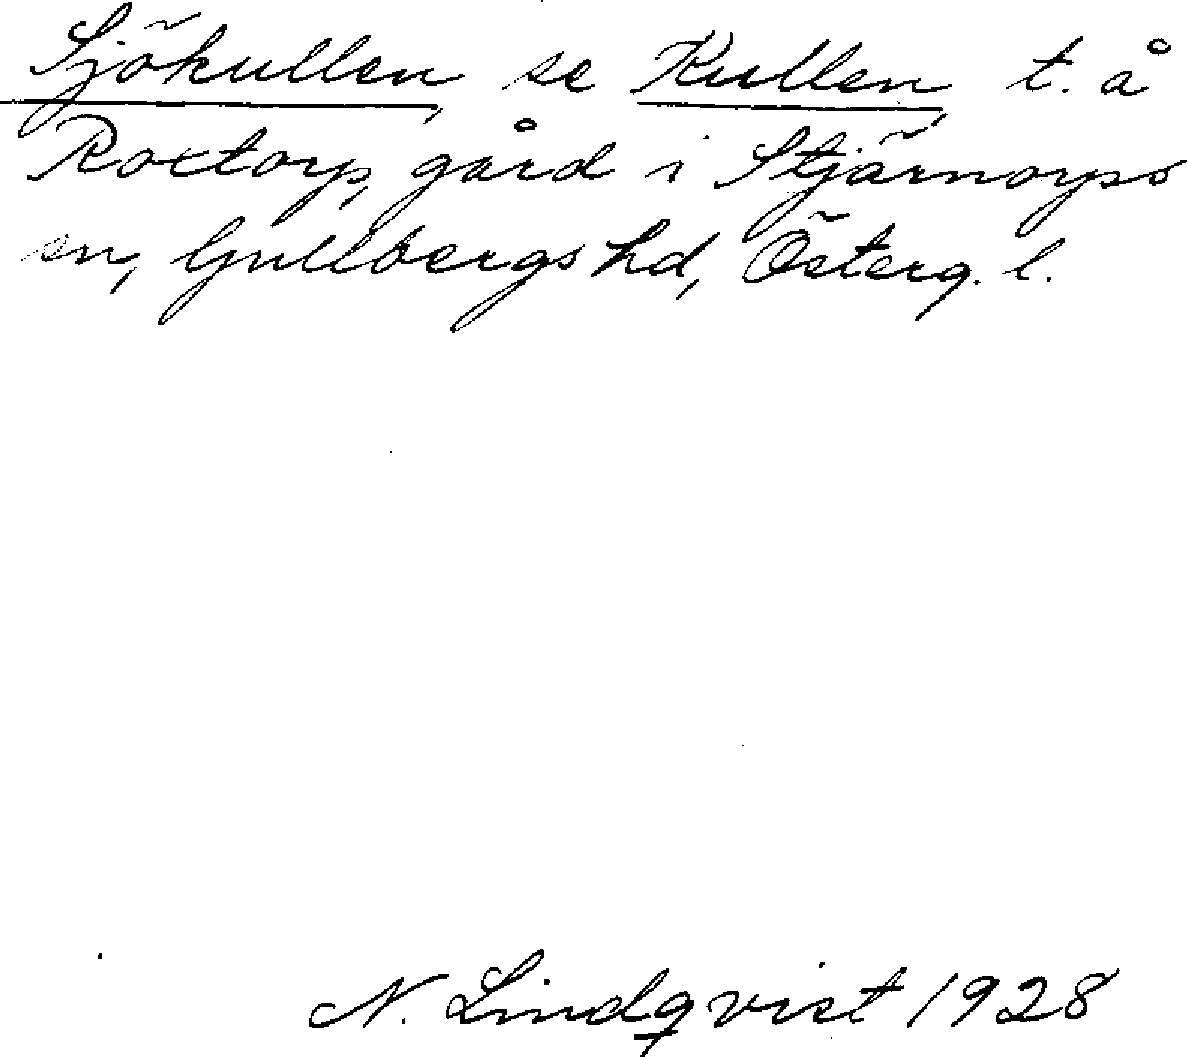 Sjökullen, se Kullen, t. å
Roxtorp, gård i Stjärnorps
sn, Gullbergs hd, Österg. l.
N. Lindqvist 1928